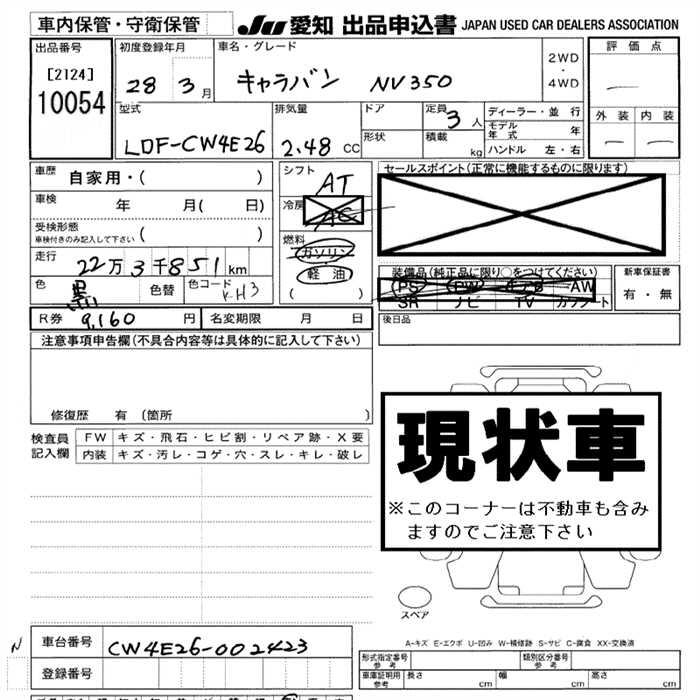 車内保管・守衛保管
JU 愛知 出品申込書 JAPAN USED CAR DEALERS ASSOCIATION
出品番号
[2124]
10054
初度登録年月
28 3月
車名・グレード
キャラバン NV350
2WD
・
4WD
評価点
外装 内装
型式
LDF-CW4E26
排気量
2.48 CC
ドア
形状
定員 3人
積載 kg
ディーラー・並行
モデル年式 年
ハンドル 左・右
車歴 自家用・( )
車検 年 月( 日)
受検形態
車検付きのみ記入して下さい ( )
走行
22万3千851km
色 黒 色替 色コード KH3
シフト
AT
冷房
AC
燃料
ガソリン
軽油
( )
セールスポイント(正常に機能するものに限ります)
装備品(純正品に限り○をつけてください)
PS PW AW
SR ナビ TV カワシート
新車保証書
有・無
R券 9,160 円 名変期限 月 日
後日品
注意事項申告欄(不具合内容等は具体的に記入して下さい)
修復歴 有(箇所 )
検査員
記入欄
FW キズ・飛石・ヒビ割・リペア跡・X要
内装 キズ・汚レ・コゲ・穴・スレ・キレ・破レ
現状車
※このコーナーは不動車も含み
ますのでご注意下さい
スペア
A-キズ E-エクボ U-凹み W-補修跡 S-サビ C-腐食 XX-交換済
N
車台番号 CW4E26-002423
登録番号
形式指定番号
参考
類別区分番号
参考
車庫証明用
参考
長さ cm 幅 cm 高さ cm